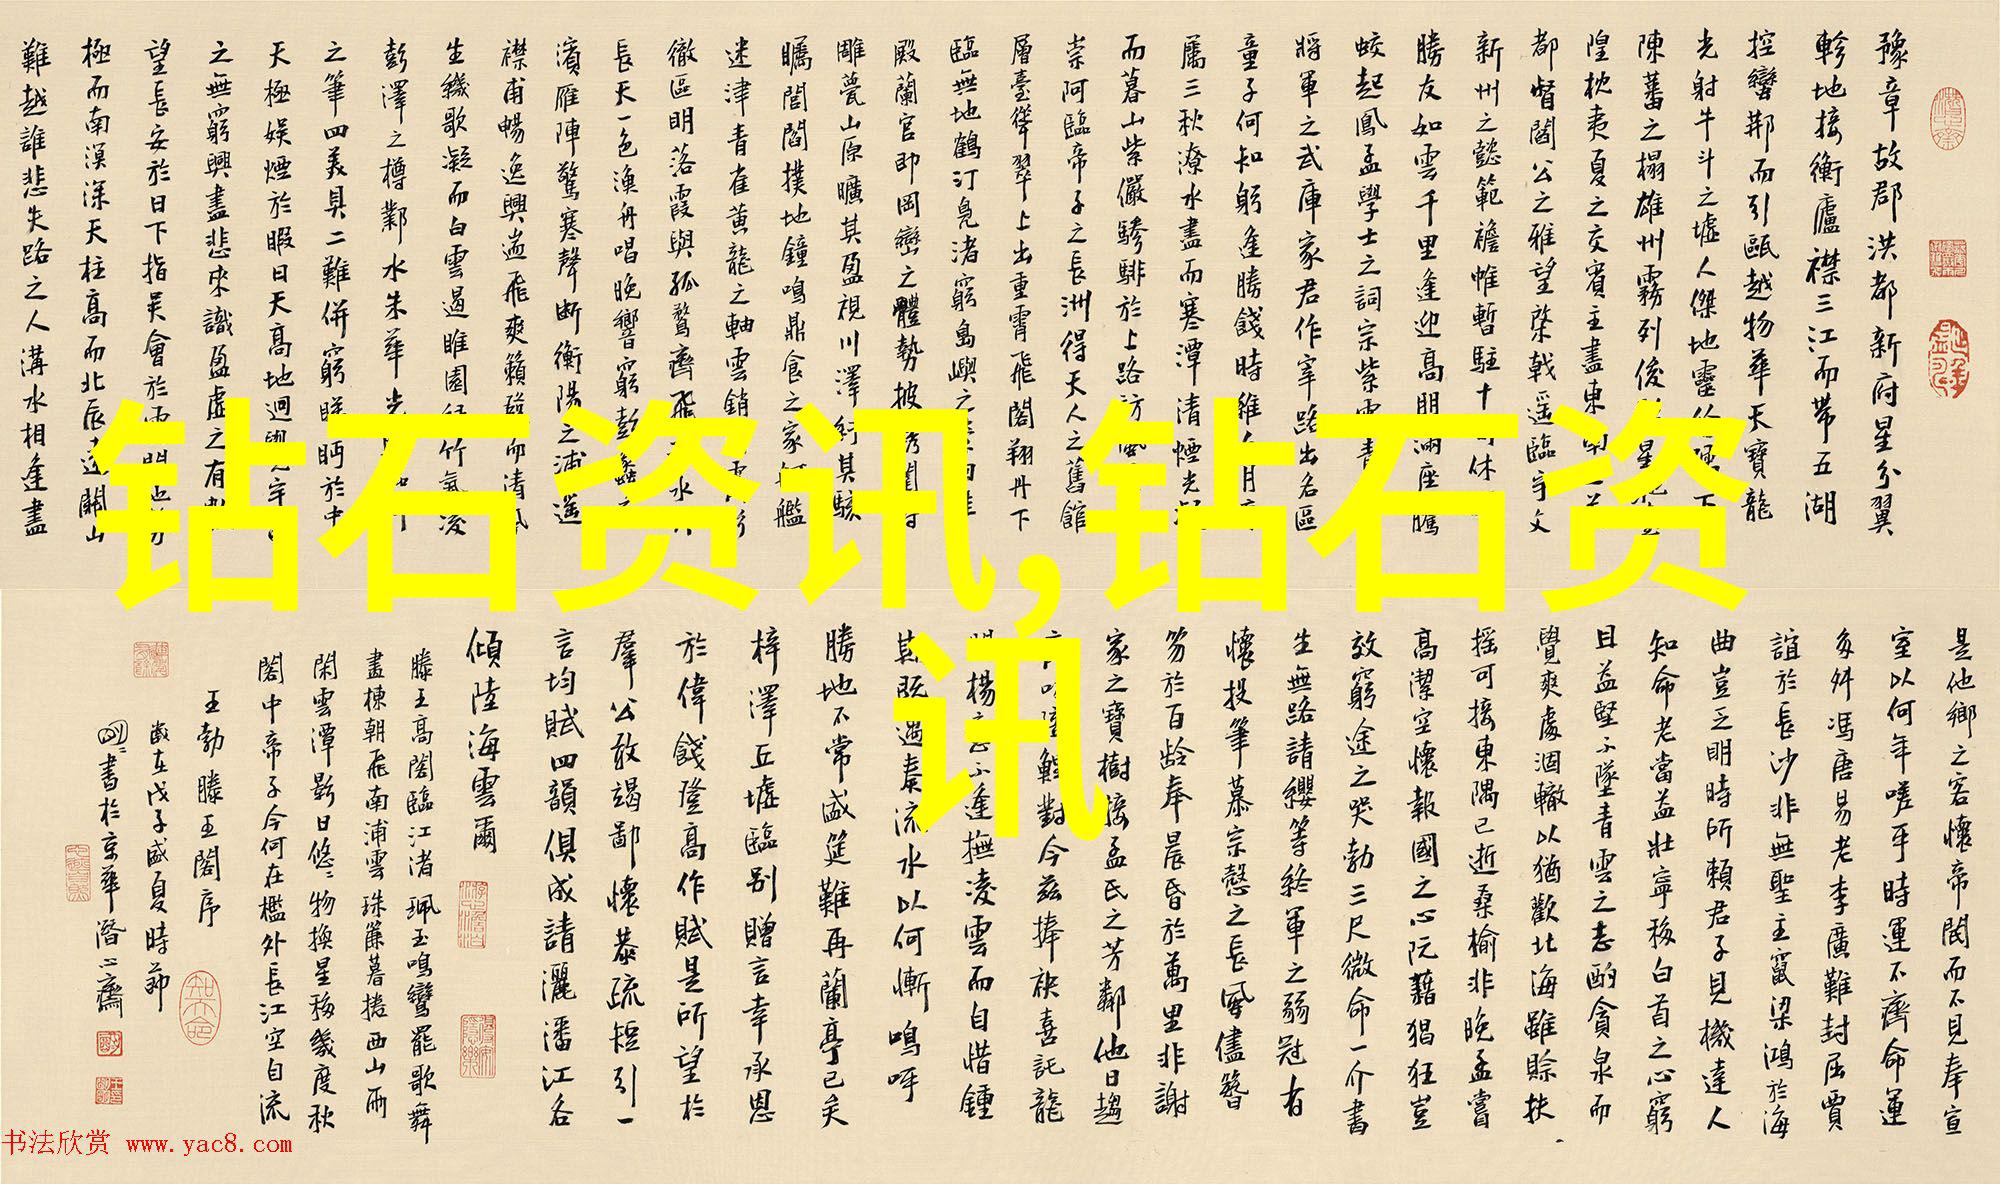 豫章故郡洪都新府星分翼
軫地接衡廬襟三江而帶五湖
控蠻荆而引甌越物華天寶龍
光射牛斗之墟人傑地靈徐孺下
陳蕃之榻雄州霧列俊
隍枕夷夏之交賓主盡東南之
都督閻公之雅望棨戟遥臨宇文
新州之懿範襜帷暫駐十旬休
勝友如雲千里逢迎高朋滿座騰
蛟起鳳孟學士之詞宗紫電青
將軍之武庫家君作宰路出名區
童子何知躬逢勝餞時維九月
屬三秋潦水盡而寒潭清煙光
而暮山紫儼驂騑於上路訪風
崇阿臨帝子之長洲得天人之舊館
層臺聳翠上出重霄飛閣翔丹下
臨無地鶴汀鳧渚窮島嶼之
殿蘭宫即岡巒之體勢披
雕甍山原曠其盈視川澤紆其駭
矚閭閻撲地鐘鳴鼎食之家舸艦
迷津青雀黄龍之軸雲銷
徹區明落霞與孤鶩齊飛
長天一色漁舟唱晚響窮彭蠡之
濱雁陣驚寒聲斷衡陽之浦遥
襟甫暢逸興遄飛爽籟發而清風
生纖歌凝而白雲遏睢園緑竹氣凌
彭澤之樽鄴水朱華光
之筆四美具二難併窮睇眄於中
天極娱煙於暇日天高地迥
之無窮興盡悲來識盈虚之有
望長安於日下指吴會於雲間
極而南溟深天柱高而北辰遠關山
難越誰悲失路之人溝水相逢盡
是他鄉之客懷帝閽而不見奉宣
室以何年嗟乎時運不齊命運
多舛馮唐易老李廣難封屈賈
誼於長沙非無聖主竄梁鴻於海
曲豈乏明時所賴君子見機達人
知命老當益壯寧移白首之心窮
且益堅不墜青雲之志酌貪泉而
覺爽處涸轍以猶歡北海雖賒扶
摇可接東隅已逝桑榆非晚孟嘗
高潔空懷報國之心阮藉猖狂豈
效窮途之哭勃三尺微命一介書
生無路請纓等終軍之弱冠有
懷投筆慕宗慤之長風儘簪
笏於百齡奉晨昏於萬里非謝
家之寶樹接孟氏之芳鄰他日趨
對今茲捧袂喜託龍
楊意不逢撫凌雲而自惜鍾
期既遇奏流水以何慚嗚呼
勝地不常盛筵難再蘭亭已矣
梓澤丘墟臨别贈言幸承恩
於偉餞登高作賦是所望於
羣公敢竭鄙懷恭疏短引一
言均賦四韻俱成請灑潘江各
傾陸海雲爾
滕王高閣臨江渚珮玉鳴鸞罷歌舞
畫棟朝飛南浦雲珠簾暮捲西山雨
閑雲潭影日悠〻物换星移幾度秋
閣中帝子今何在檻外長江空自流
王勃滕王閣序
歲在戊子盛夏時節
書於京華潛心齋
钻石资讯,钻石资
讯
书法欣赏 www.yac8.com